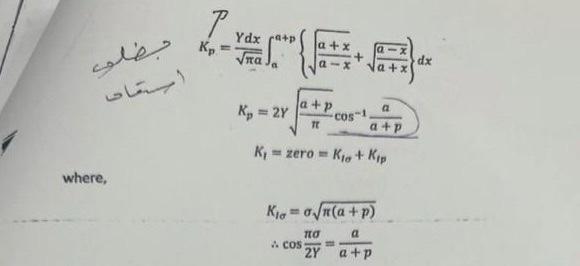 P
K_p = \frac{Ydx}{\sqrt{πa}} \int_{a}^{a+p} \left\{ \sqrt{\frac{a+x}{a-x}} + \sqrt{\frac{a-x}{a+x}} \right\} dx
K_p = 2Y \sqrt{\frac{a+p}{π}} cos^{-1} \frac{a}{a+p}
K_I = zero = K_{Iσ} + K_{Ip}
where,
K_{Iσ} = σ\sqrt{π(a+p)}
∴ cos \frac{πσ}{2Y} = \frac{a}{a+p}